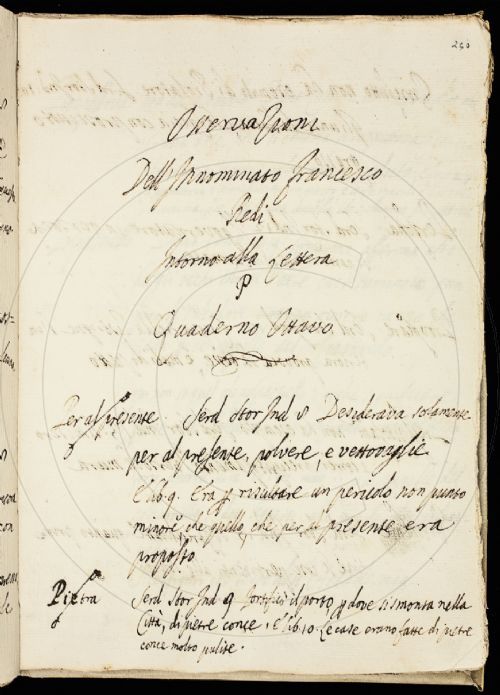 260
Osservazioni
Dell'Innominato Francesco
Redi
Intorno alla Lettera
P
Quaderno Ottavo
Per al presente Serd Stor Ind 8 Desiderava solamente
per al presente, polvere, e vettovaglie
E lib 9. Era p risultare un pericolo non punto
minore, che quello, che per al presente era
proposto
Pietra Serd Stor Ind 9 fortificò il porto p dove si smonta nella
Città, di pietre conce. E lib. 10 Le case erano fatte di pietre
conce molto pulite.